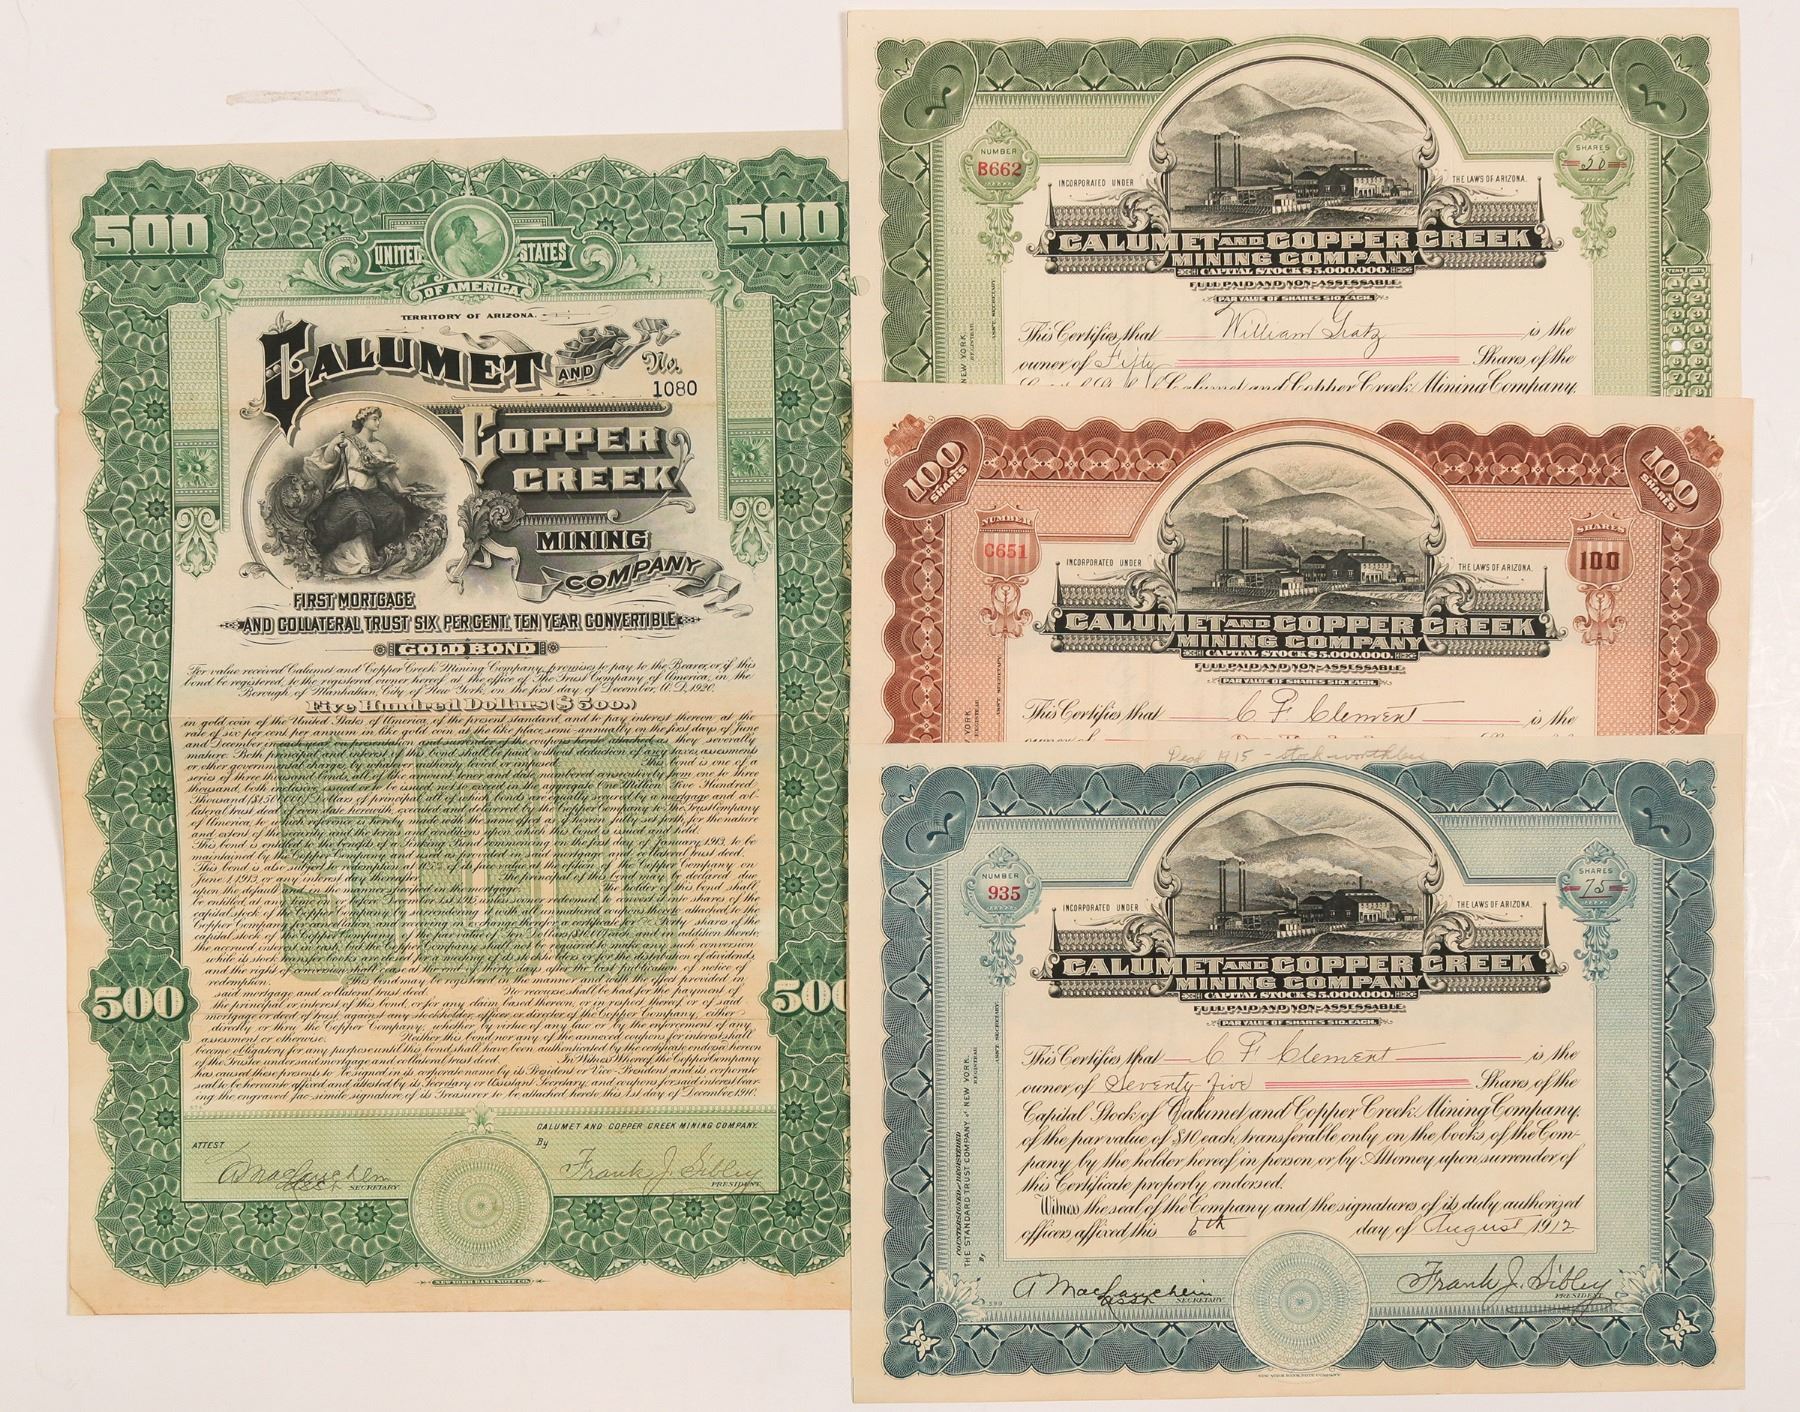 500
500
UNITED STATES
OF AMERICA
TERRITORY OF ARIZONA.
CALUMET AND
No.
1080
COPPER
CREEK
MINING
COMPANY
FIRST MORTGAGE
AND COLLATERAL TRUST SIX PER CENT. TEN YEAR CONVERTIBLE
GOLD BOND
For value received Calumet and Copper Creek Mining Company, promises to pay to the Bearer, or if this
bond be registered, to the registered owner hereof at the office of The Trust Company of America, in the
Borough of Manhattan, City of New York, on the first day of December, A.D. 1920.
Five Hundred Dollars ($500.)
in gold coin of the United States of America, of the present standard, and to pay interest thereon at the
rate of six per cent per annum in like gold coin at the like place, semi-annually on the first days of June
and December in each year, on presentation and surrender of the coupons hereto attached as they severally
mature. Both principal and interest of this bond shall be paid without deduction of any taxes, assessments
or other governmental charges, by whatever authority levied or imposed. This bond is one of a
series of three thousand bonds, all of like amount, tenor and date, numbered consecutively from one to three
thousand, both inclusive, issued or to be issued, not to exceed in the aggregate One Million Five Hundred
Thousand ($1,500,000) Dollars of principal, all of which bonds are equally secured by a mortgage and col-
lateral trust deed of even date herewith, executed and delivered by the Copper Company to The Trust Company
of America, to which reference is hereby made with the same effect as if herein fully set forth, for the nature
and extent of the security and the terms and conditions upon which this bond is issued and held.
This bond is entitled to the benefits of a Sinking Fund commencing on the first day of January, 1913, to be
maintained by the Copper Company and used as provided in said mortgage and collateral trust deed.
This bond is also subject to redemption at 105% of its face value at the option of the Copper Company on
June 1, 1913, or any interest day thereafter. The principal of this bond may be declared due
upon the default and in the manner specified in the mortgage. The holder of this bond shall
be entitled at any time on or before December 1st, 1915, unless sooner redeemed, to convert it into shares of the
capital stock of the Copper Company, by surrendering it with all unmatured coupons thereto attached to the
Copper Company for cancellation, and receiving in exchange therefor certificates for Fifty shares of the
capital stock of the Copper Company of the par value of Ten Dollars ($10.00) each, and in addition thereto,
the accrued interest in cash, but the Copper Company shall not be required to make any such conversion
while its stock transfer books are closed for a meeting of its stockholders or for the distribution of dividends,
and the right of conversion shall cease at the end of thirty days after the last publication of notice of
redemption. This bond may be registered in the manner and with the effect provided in
said mortgage and collateral trust deed. No recourse shall be had for the payment of
the principal or interest of this bond, or for any claim based thereon, or in respect thereof, or of said
mortgage or deed of trust, against any stockholder, officer or director of the Copper Company, either
directly or thru the Copper Company, whether by virtue of any law or by the enforcement of any
assessment or otherwise. Neither this bond nor any of the annexed coupons for interest shall
become obligatory for any purpose until this bond shall have been authenticated by the certificate endorsed hereon
of the Trustee under said mortgage and collateral trust deed. In Witness Whereof, the Copper Company
has caused these presents to be signed in its corporate name by its President or Vice-President and its corporate
seal to be hereunto affixed and attested by its Secretary or Assistant Secretary, and coupons for said interest bear-
ing the engraved fac-simile signature of its Treasurer to be attached hereto, this 1st day of December, 1910.
500
500
CALUMET AND COPPER CREEK MINING COMPANY.
ATTEST
By
Frank J. Sibley
Asst SECRETARY
PRESIDENT
NEW YORK BANK NOTE CO.
NUMBER
B662
SHARES
50
INCORPORATED UNDER THE LAWS OF ARIZONA.
CALUMET AND COPPER CREEK
MINING COMPANY
CAPITAL STOCK $5,000,000.
FULL PAID AND NON-ASSESSABLE
PAR VALUE OF SHARES $10. EACH.
This Certifies that William Gratz is the
owner of Fifty Shares of the
Capital Stock of Calumet and Copper Creek Mining Company,
NEW YORK
REGISTRAR.
ASS'T SECRETARY
TENS UNITS
100 SHARES
100 SHARES
NUMBER
C651
SHARES
100
INCORPORATED UNDER THE LAWS OF ARIZONA.
CALUMET AND COPPER CREEK
MINING COMPANY
CAPITAL STOCK $5,000,000.
FULL PAID AND NON-ASSESSABLE
PAR VALUE OF SHARES $10. EACH.
This Certifies that C F Clement is the
YORK.
REGISTRAR
ASS'T SECRETARY
1915 - stock worthless
NUMBER
935
SHARES
75
INCORPORATED UNDER THE LAWS OF ARIZONA.
CALUMET AND COPPER CREEK
MINING COMPANY
CAPITAL STOCK $5,000,000.
FULL PAID AND NON-ASSESSABLE
PAR VALUE OF SHARES $10. EACH.
This Certifies that C F Clement is the
owner of Seventy-five Shares of the
Capital Stock of Calumet and Copper Creek Mining Company,
of the par value of $10 each, transferable only on the books of the Com-
pany by the holder hereof in person, or by Attorney upon surrender of
this Certificate properly endorsed.
Witness the seal of the Company and the signatures of its duly authorized
officers, affixed this 6th day of August 1912
COUNTERSIGNED AND REGISTERED
THE STANDARD TRUST COMPANY OF NEW YORK.
REGISTRAR
By
ASS'T SECRETARY
Asst SECRETARY
Frank J. Sibley
PRESIDENT
NEW YORK BANK NOTE COMPANY